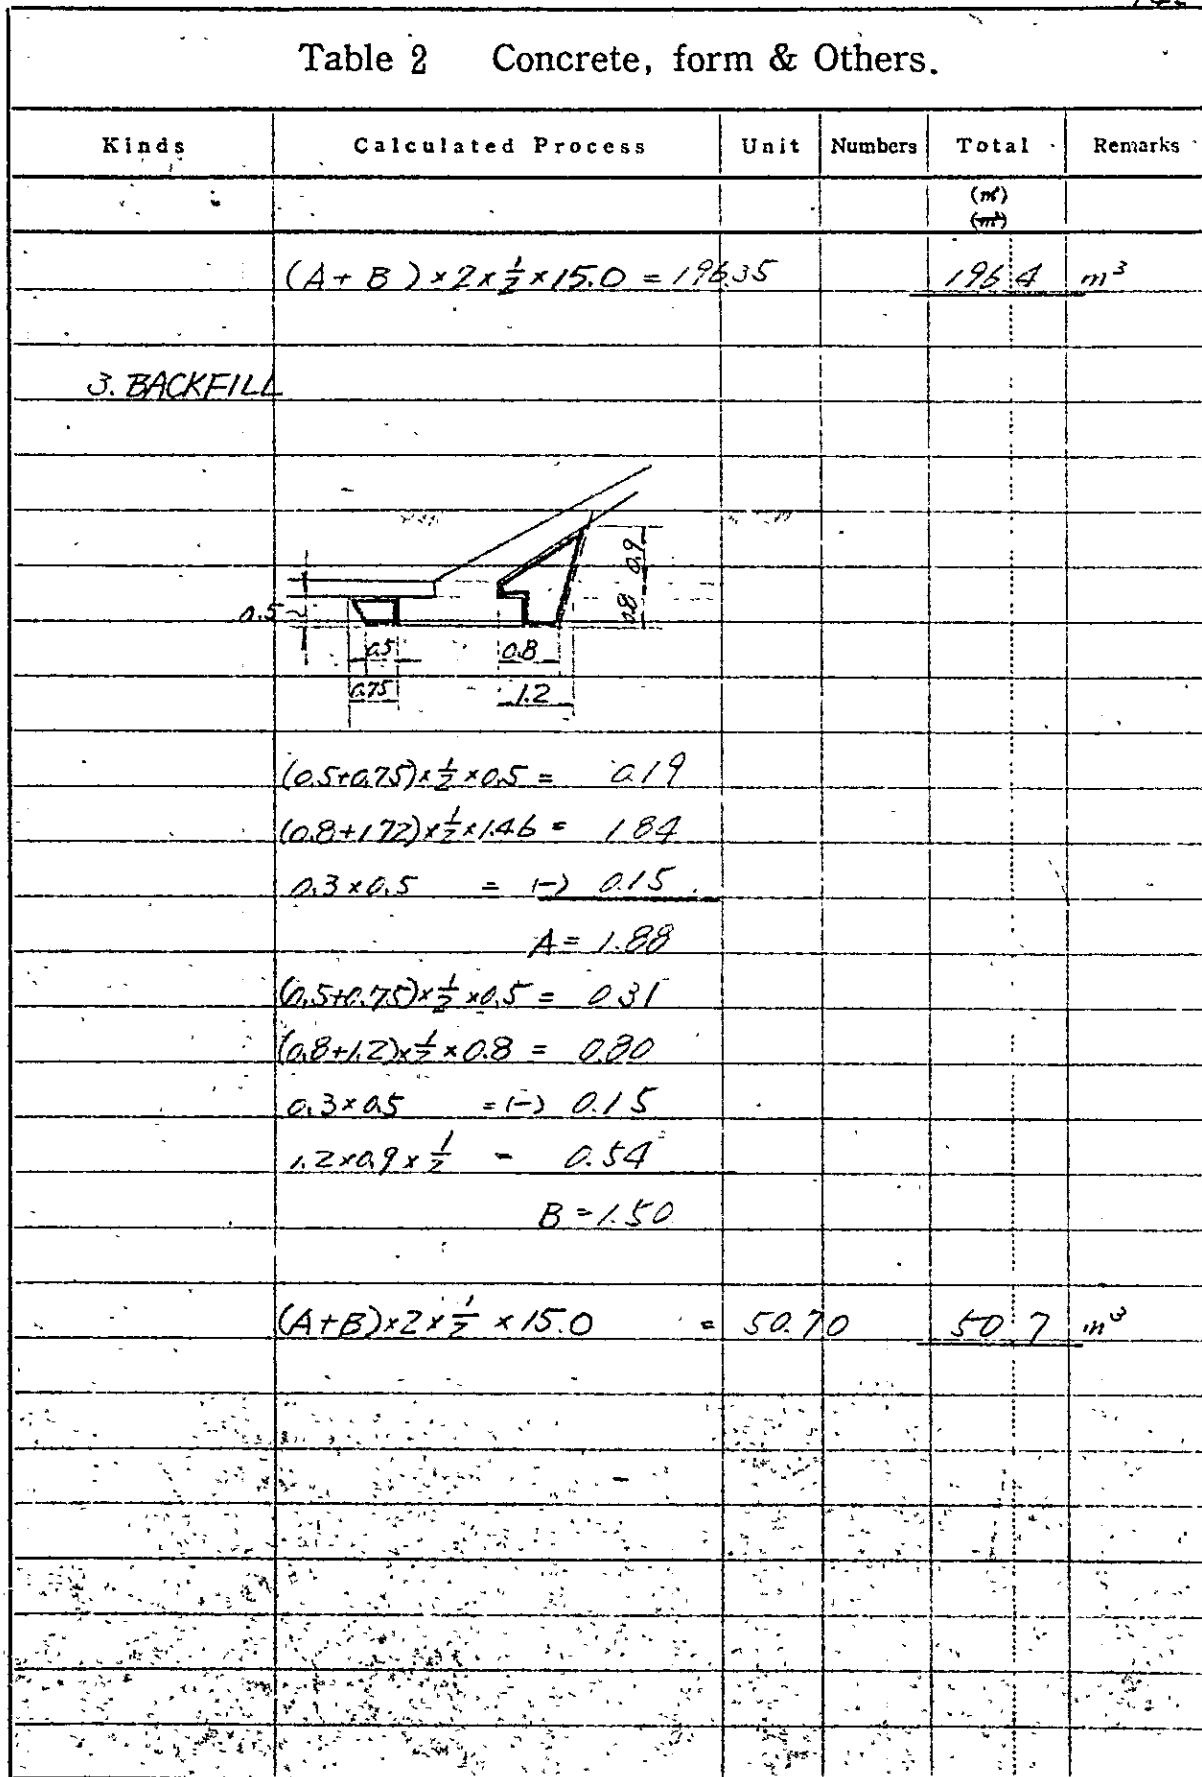 Table 2 Concrete, form & Others.
Kinds Calculated Process Unit Numbers Total Remarks
(m²)
(m³)
(A + B) × 2 × 1/2 × 15.0 = 196.35 196.4 m³
3. BACKFILL
0.9
0.8
0.5
0.5 0.8
0.75 1.2
(0.5+0.75)×1/2×0.5 = 0.19
(0.8+1.72)×1/2×1.46 = 1.84
0.3×0.5 = (-) 0.15
A = 1.88
(0.5+0.75)×1/2×0.5 = 0.31
(0.8+1.2)×1/2×0.8 = 0.80
0.3×0.5 = (-) 0.15
1.2×0.9×1/2 = 0.54
B = 1.50
(A+B)×2×1/2×15.0 = 50.70 50.7 m³